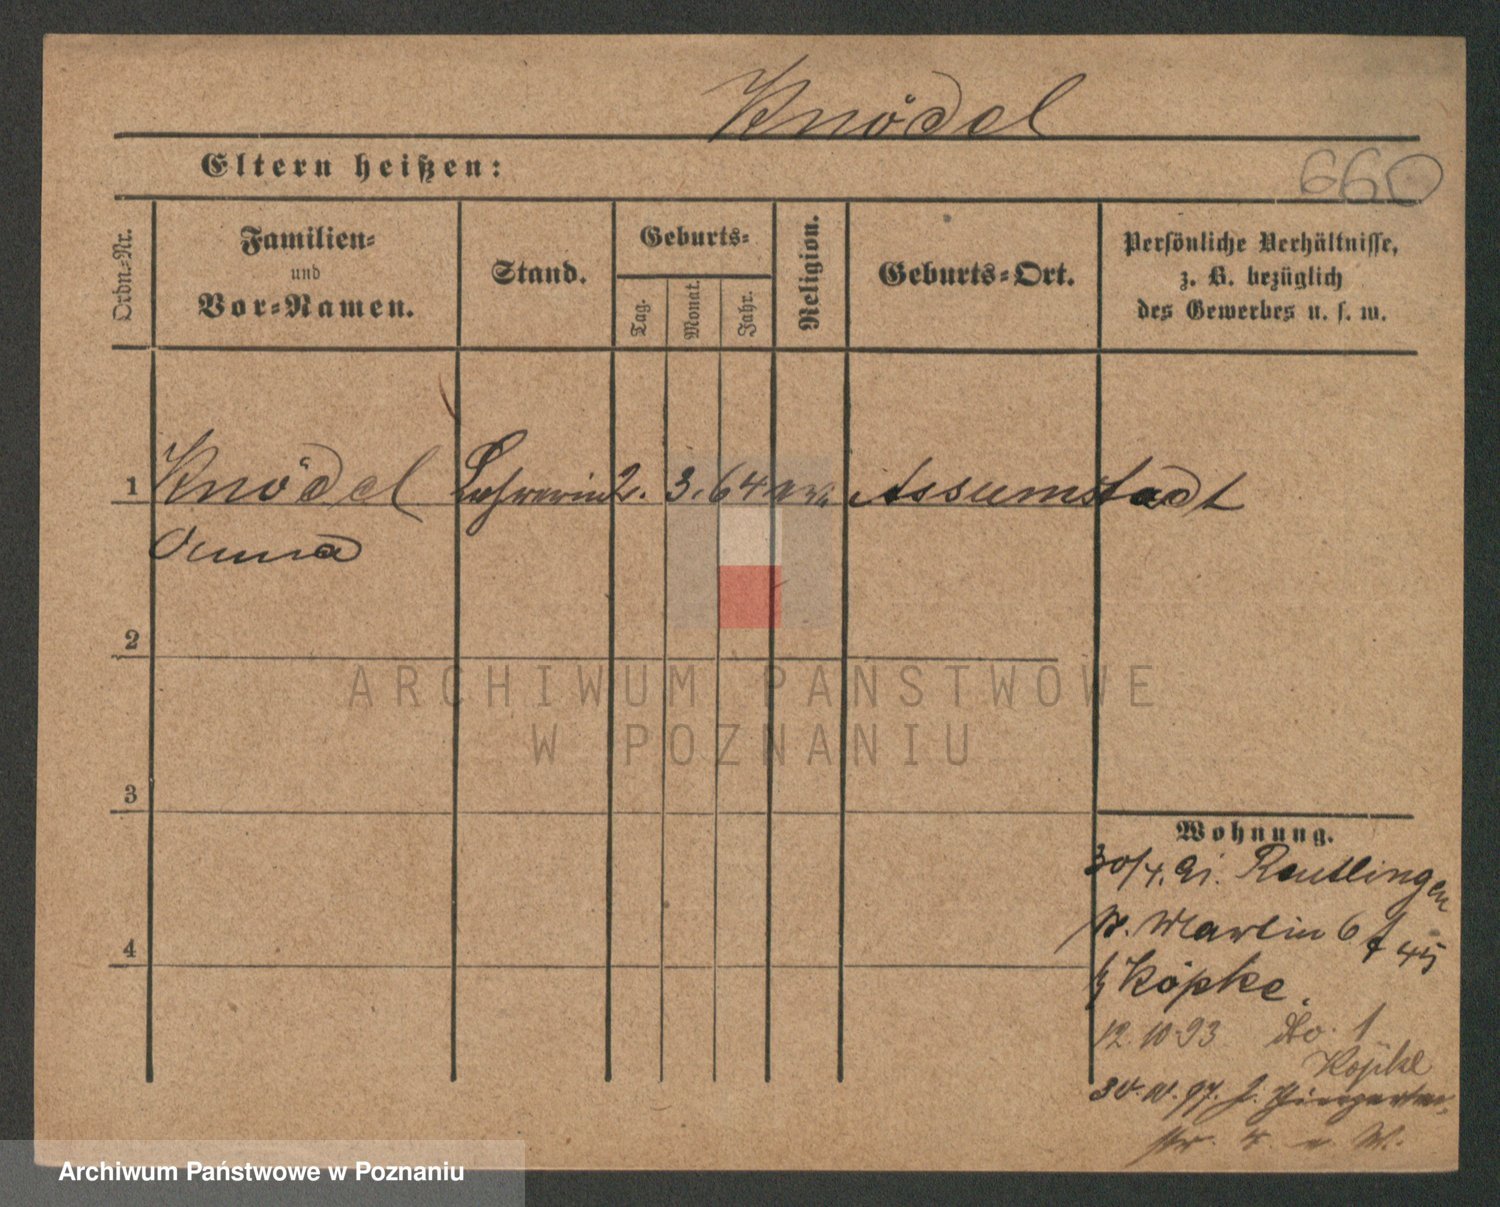 Knödel
Eltern heißen:
660
Ordn.-Nr.
Familien-
und
Vor-Namen.
Stand.
Geburts-
Tag.
Monat.
Jahr.
Religion.
Geburts-Ort.
Persönliche Verhältnisse,
z. B. bezüglich
des Gewerbes u. s. w.
1 Knödel Lehrerin 2. 3. 64 ev. Assumstadt
Anna
2
3
4
Wohnung.
30/4. 91. Reutlingen
St. Martin 6
45
b Köpke.
12.10.93 do. 1
Köpke
ARCHIWUM PAŃSTWOWE
W POZNANIU
Archiwum Państwowe w Poznaniu